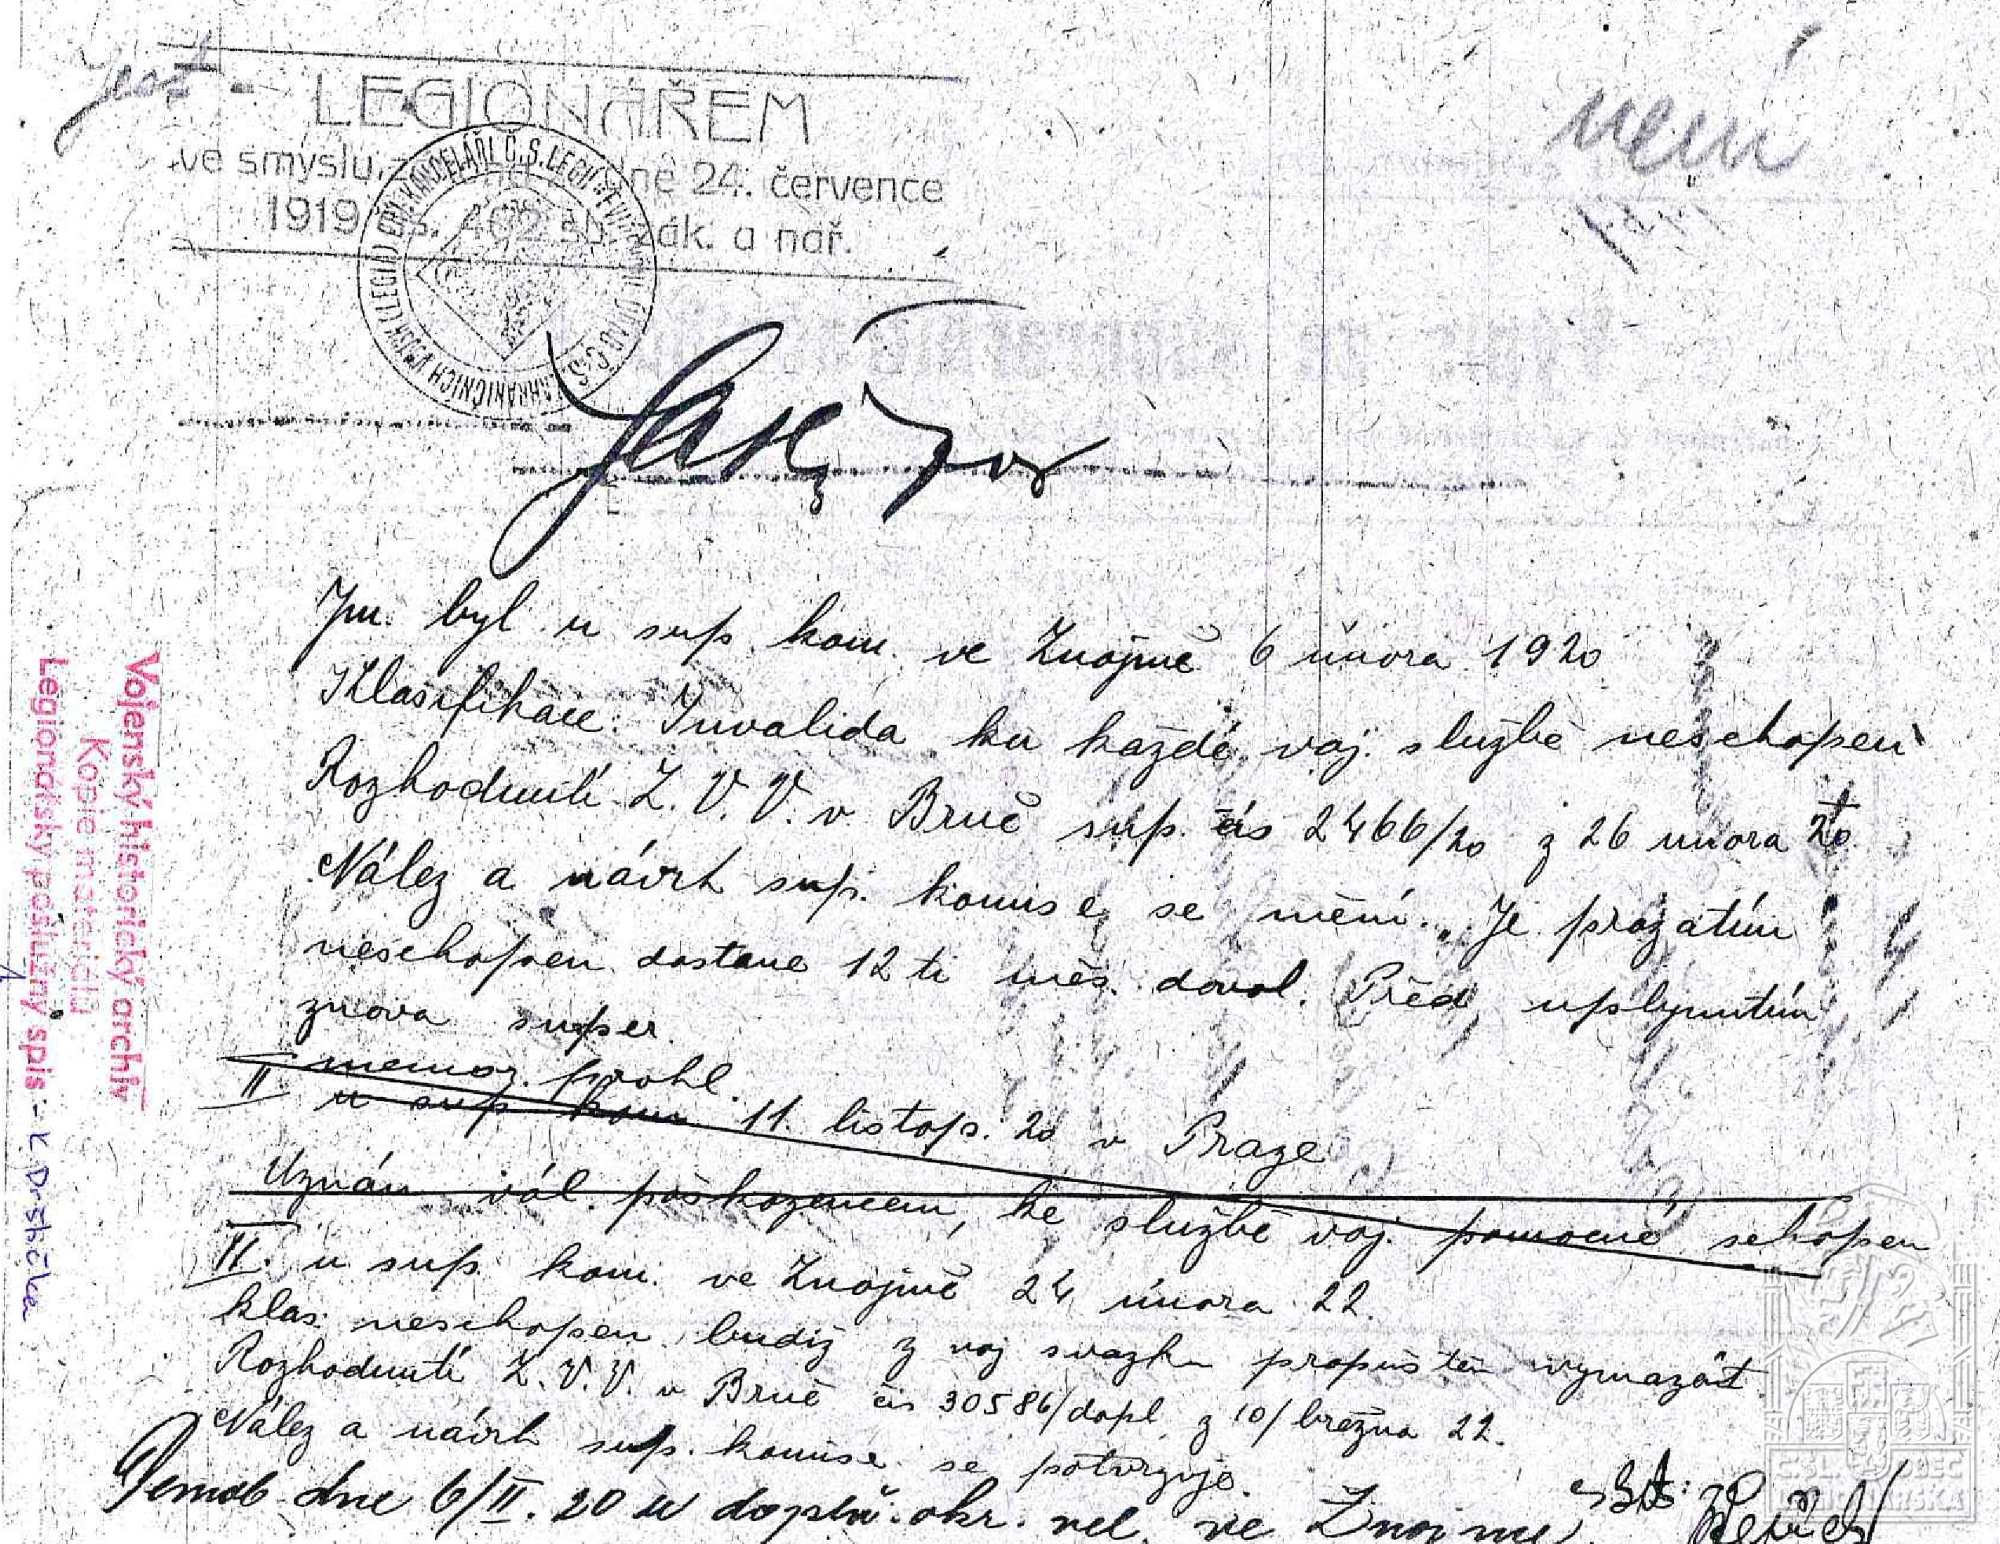 jest - LEGIONÁŘEM
není
ve smyslu dne 24. července
1919 čís. 462 sb. zák. a nař.
Jm. byl u sup. kom. ve Znojmě 6 února 1920
Klasifikace: Invalida ku každé voj. službě neschopen
Rozhodnutí Z. V. V. v Brně sup. čís 2466/20 z 26 února 20
Nález a návrh sup. komise se mění. „Je prozatím
neschopen dostane 12 ti měs. dovol. Před uplynutím
znova super.
nemoz. prohl.
II u sup kom 11. listop. 20 v Praze
Uznán vál. poškozencem, ke službě voj. pomocné schopen
II. u sup. kom. ve Znojmě 24 února 22.
klas. neschopen, budiž z voj svazku propuštěn vymazát
Rozhodnutí Z. V. V. v Brně čís 30586/dopl. z 10/ března 22.
Nález a návrh sup. komise se potvrzuje.
Demob. dne 6/II. 20 u doplň. okr. vel. ve Znojmě.
Vojenský historický archiv
Kopie materiálů
Legionářský poslužný spis - K Drstička